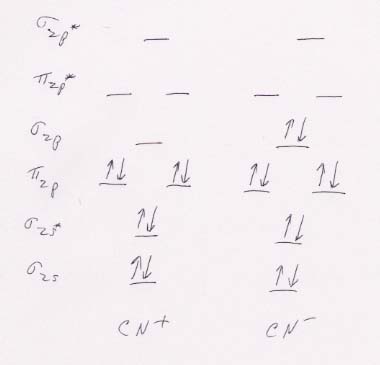 σ2p*
π2p*
σ2p
π2p
σ2s*
σ2s
CN+ CN-